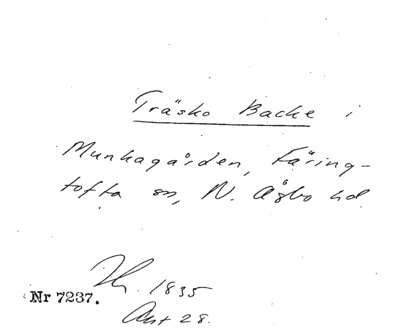 Träsko Backe i
Munkagården, Färing-
tofta sn, N. Åsbo hd
1835
Nr 7237.
Akt 28.